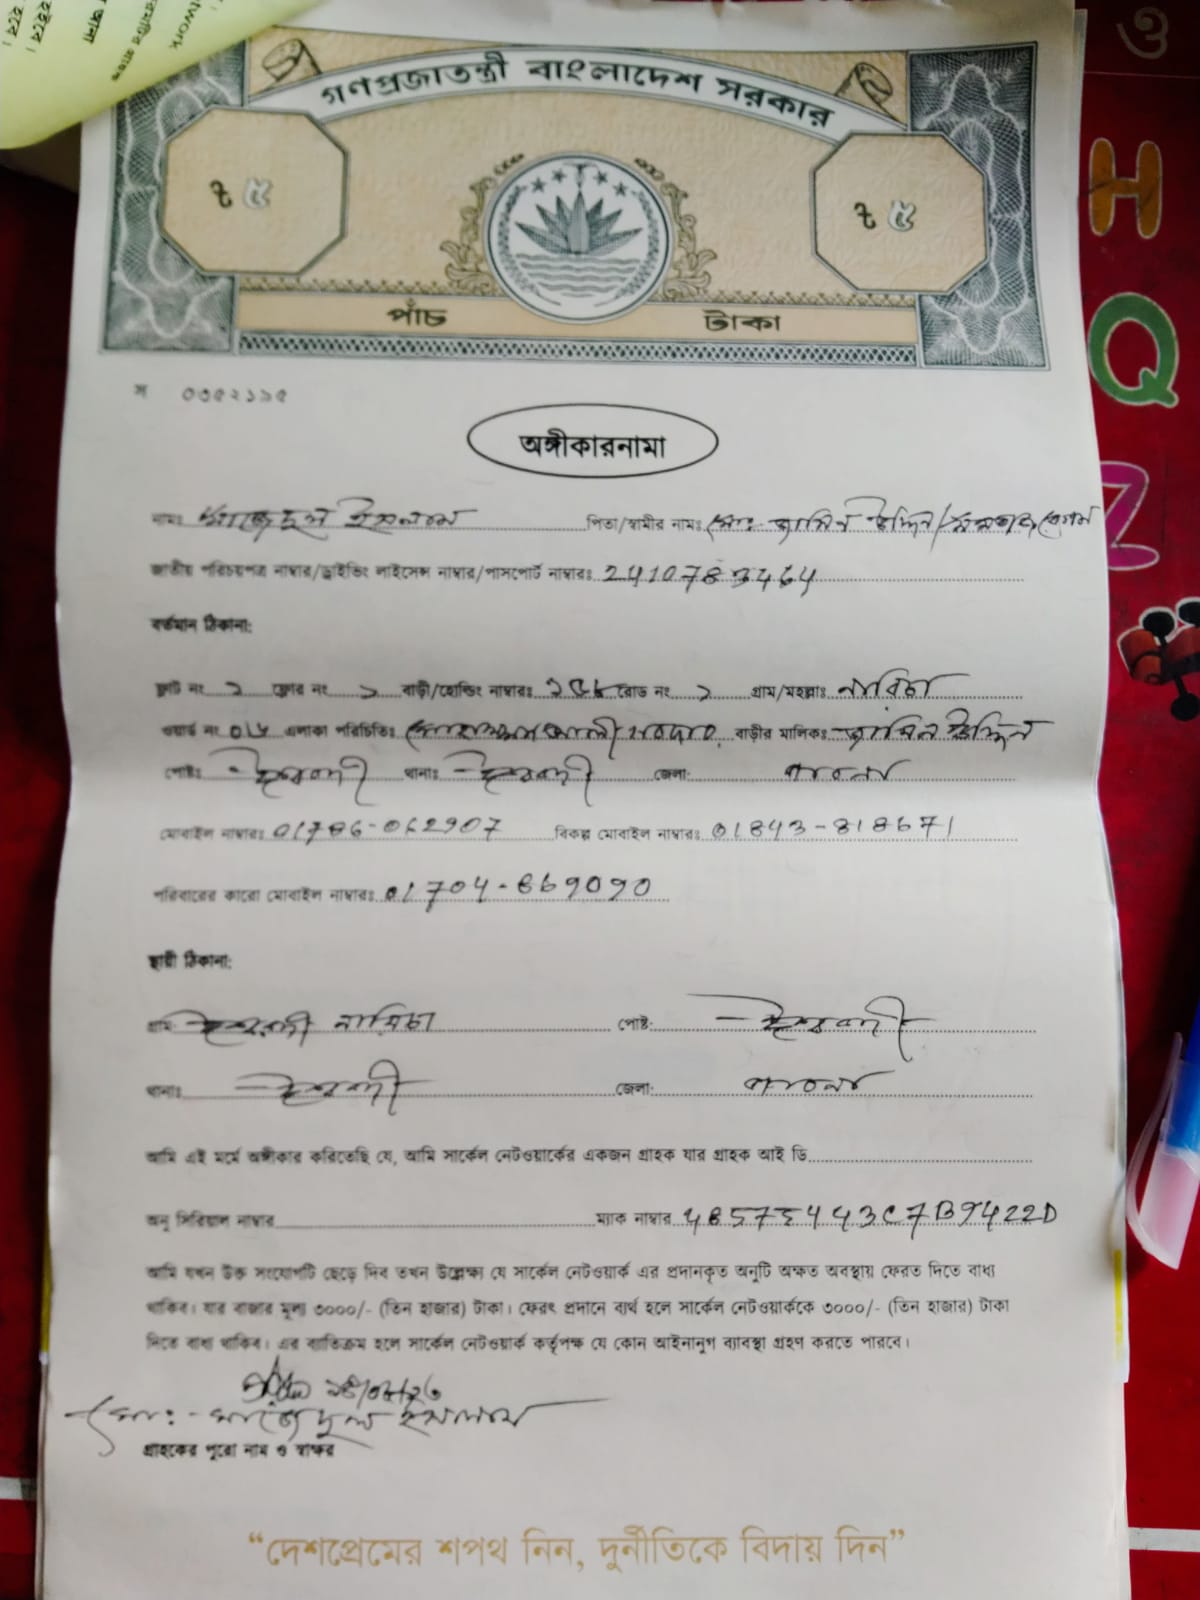 গণপ্রজাতন্ত্রী বাংলাদেশ সরকার
৳ ৫ ৳ ৫
পাঁচ টাকা
স ০৩৫২১৯৫
অঙ্গীকারনামা
নামঃ মাজেদুল ইসলাম পিতা/স্বামীর নামঃ মোঃ- জামিন উদ্দিন/মমতাজ বেগম
জাতীয় পরিচয়পত্র নাম্বার/ড্রাইভিং লাইসেন্স নাম্বার/পাসপোর্ট নাম্বারঃ 2410783464
বর্তমান ঠিকানা:
ফ্লাট নং ১ ফ্লোর নং ১ বাড়ী/হোল্ডিং নাম্বারঃ রোড নং ১ গ্রাম/মহল্লাঃ নারিচা
ওয়ার্ড নং এলাকা পরিচিতিঃ বাড়ীর মালিকঃ জামিন উদ্দিন
পোষ্টঃ ঈশ্বরদী থানাঃ ঈশ্বরদী জেলা: পাবনা
মোবাইল নাম্বারঃ 01786-062907 বিকল্প মোবাইল নাম্বারঃ 01843-818671
পরিবারের কারো মোবাইল নাম্বারঃ 01704-869090
স্থায়ী ঠিকানা:
গ্রাম: নারিচা পোষ্ট: ঈশ্বরদী
থানাঃ ঈশ্বরদী জেলা: পাবনা
আমি এই মর্মে অঙ্গীকার করিতেছি যে, আমি সার্কেল নেটওয়ার্কের একজন গ্রাহক যার গ্রাহক আই ডি
অনু সিরিয়াল নাম্বার ম্যাক নাম্বার 485754443C7B9422D
আমি যখন উক্ত সংযোগটি ছেড়ে দিব তখন উল্লেক্ষ্য যে সার্কেল নেটওয়ার্ক এর প্রদানকৃত অনুটি অক্ষত অবস্থায় ফেরত দিতে বাধ্য
থাকিব। যার বাজার মূল্য ৩০০০/- (তিন হাজার) টাকা। ফেরৎ প্রদানে ব্যর্থ হলে সার্কেল নেটওয়ার্ককে ৩০০০/- (তিন হাজার) টাকা
দিতে বাধ্য থাকিব। এর ব্যতিক্রম হলে সার্কেল নেটওয়ার্ক কর্তৃপক্ষ যে কোন আইনানুগ ব্যাবস্থা গ্রহণ করতে পারবে।
মোঃ- মাজেদুল ইসলাম
গ্রাহকের পুরো নাম ও স্বাক্ষর
“দেশপ্রেমের শপথ নিন, দুর্নীতিকে বিদায় দিন”
H
Q
Z